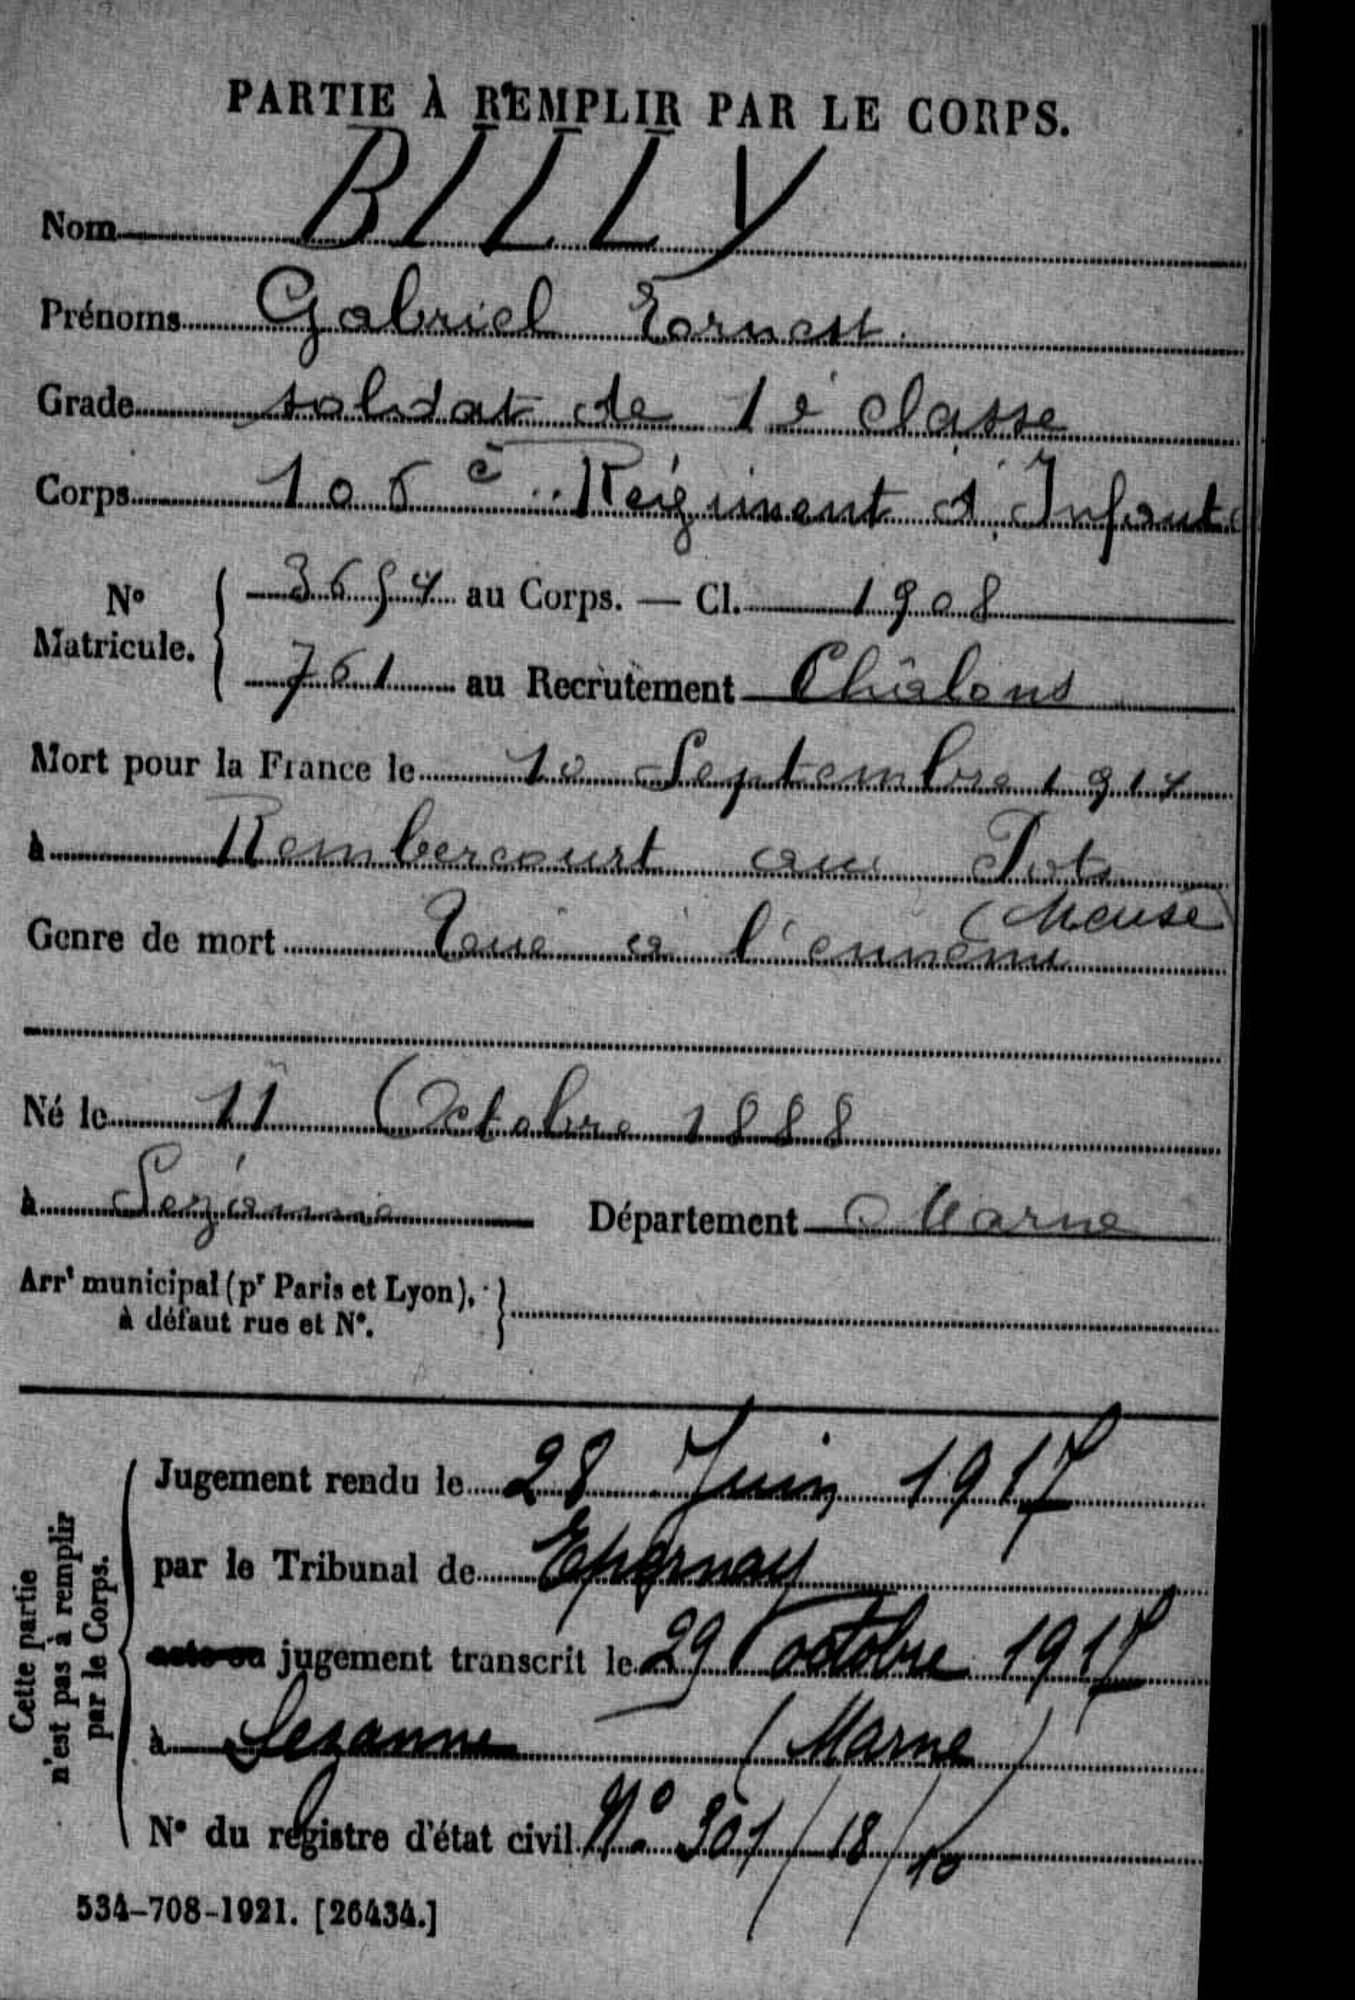 PARTIE À REMPLIR PAR LE CORPS.
Nom BILLY
Prénoms Gabriel Ernest
Grade soldat de 1è classe
Corps 106e Régiment d'Infant
N° Matricule. 3654 au Corps. — Cl. 1908
761 au Recrutement Châlons
Mort pour la France le 10 Septembre 1914
à Rembercourt aux Pots
(Meuse)
Genre de mort Tué à l'ennemi
Né le 11 Octobre 1888
à Sézanne Département Marne
Arrt municipal (pr Paris et Lyon),
à défaut rue et N°.
Cette partie
n'est pas à remplir
par le Corps.
Jugement rendu le 28 Juin 1917
par le Tribunal de Epernay
acte ou jugement transcrit le 29 octobre 1917
à Sezanne (Marne)
N° du registre d'état civil N° 301/18/10
534-708-1921. [26434.]